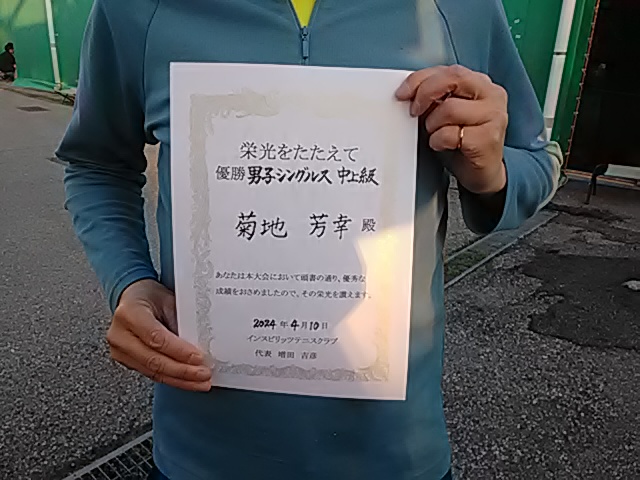 栄光をたたえて
優勝 男子シングルス 中上級
菊地 芳幸 殿
あなたは本大会において頭書の通り、優秀な
成績をおさめましたので、その栄光を讃えます。
2024 年 4 月 10 日
インスピリッツテニスクラブ
代表 増田 吉彦